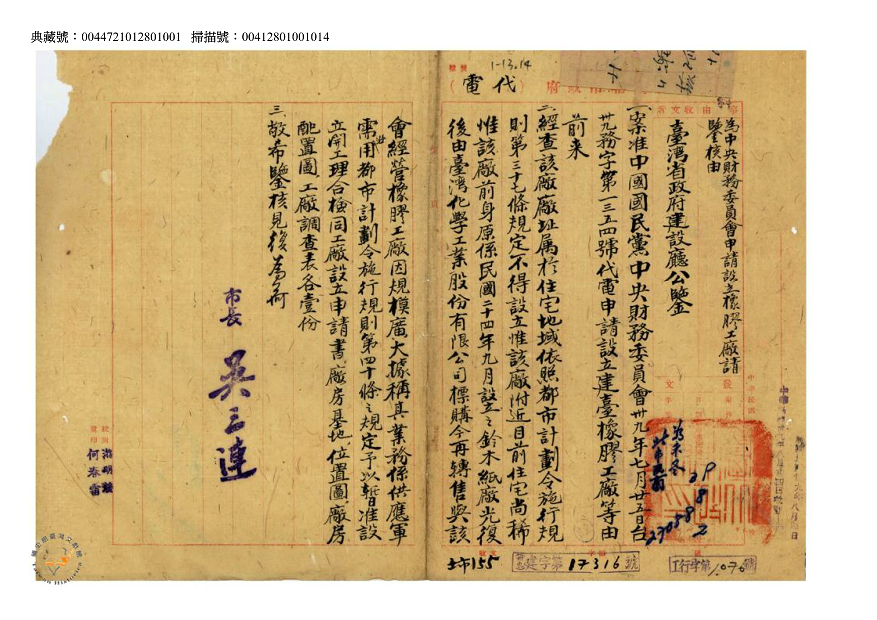 典藏號：0044721012801001 掃描號：00412801001014
1-13.14
（電代）府政市北
為中央財務委員會申請設立橡膠工廠請
鑒核由
臺灣省政府建設廳公鑒
一、案准中國國民黨中央財務委員會卅九年七月廿五日台
卅九務字第一三五四號代電申請設立建臺橡膠工廠等由
前來
二、經查該廠廠址属於住宅地域依照都市計劃令施行規
則第三十七條規定不得設立惟該廠附近目前住宅尚稀
惟該廠前身原係民國二十四年九月設立之鈴木紙廠光復
後由臺灣化學工業股份有限公司標購今再轉售與該
會經營橡膠工廠因規模廣大據稱其業務係供應軍
需用都市計劃令施行規則第四十條之規定予以暫准設
立開工理合檢同工廠設立申請書廠房基地位置圖廠房
配置圖工廠調查表各壹份
三、敬希鑒核見復為荷
市長 吳三連
建字第17316號
工行字第1070號